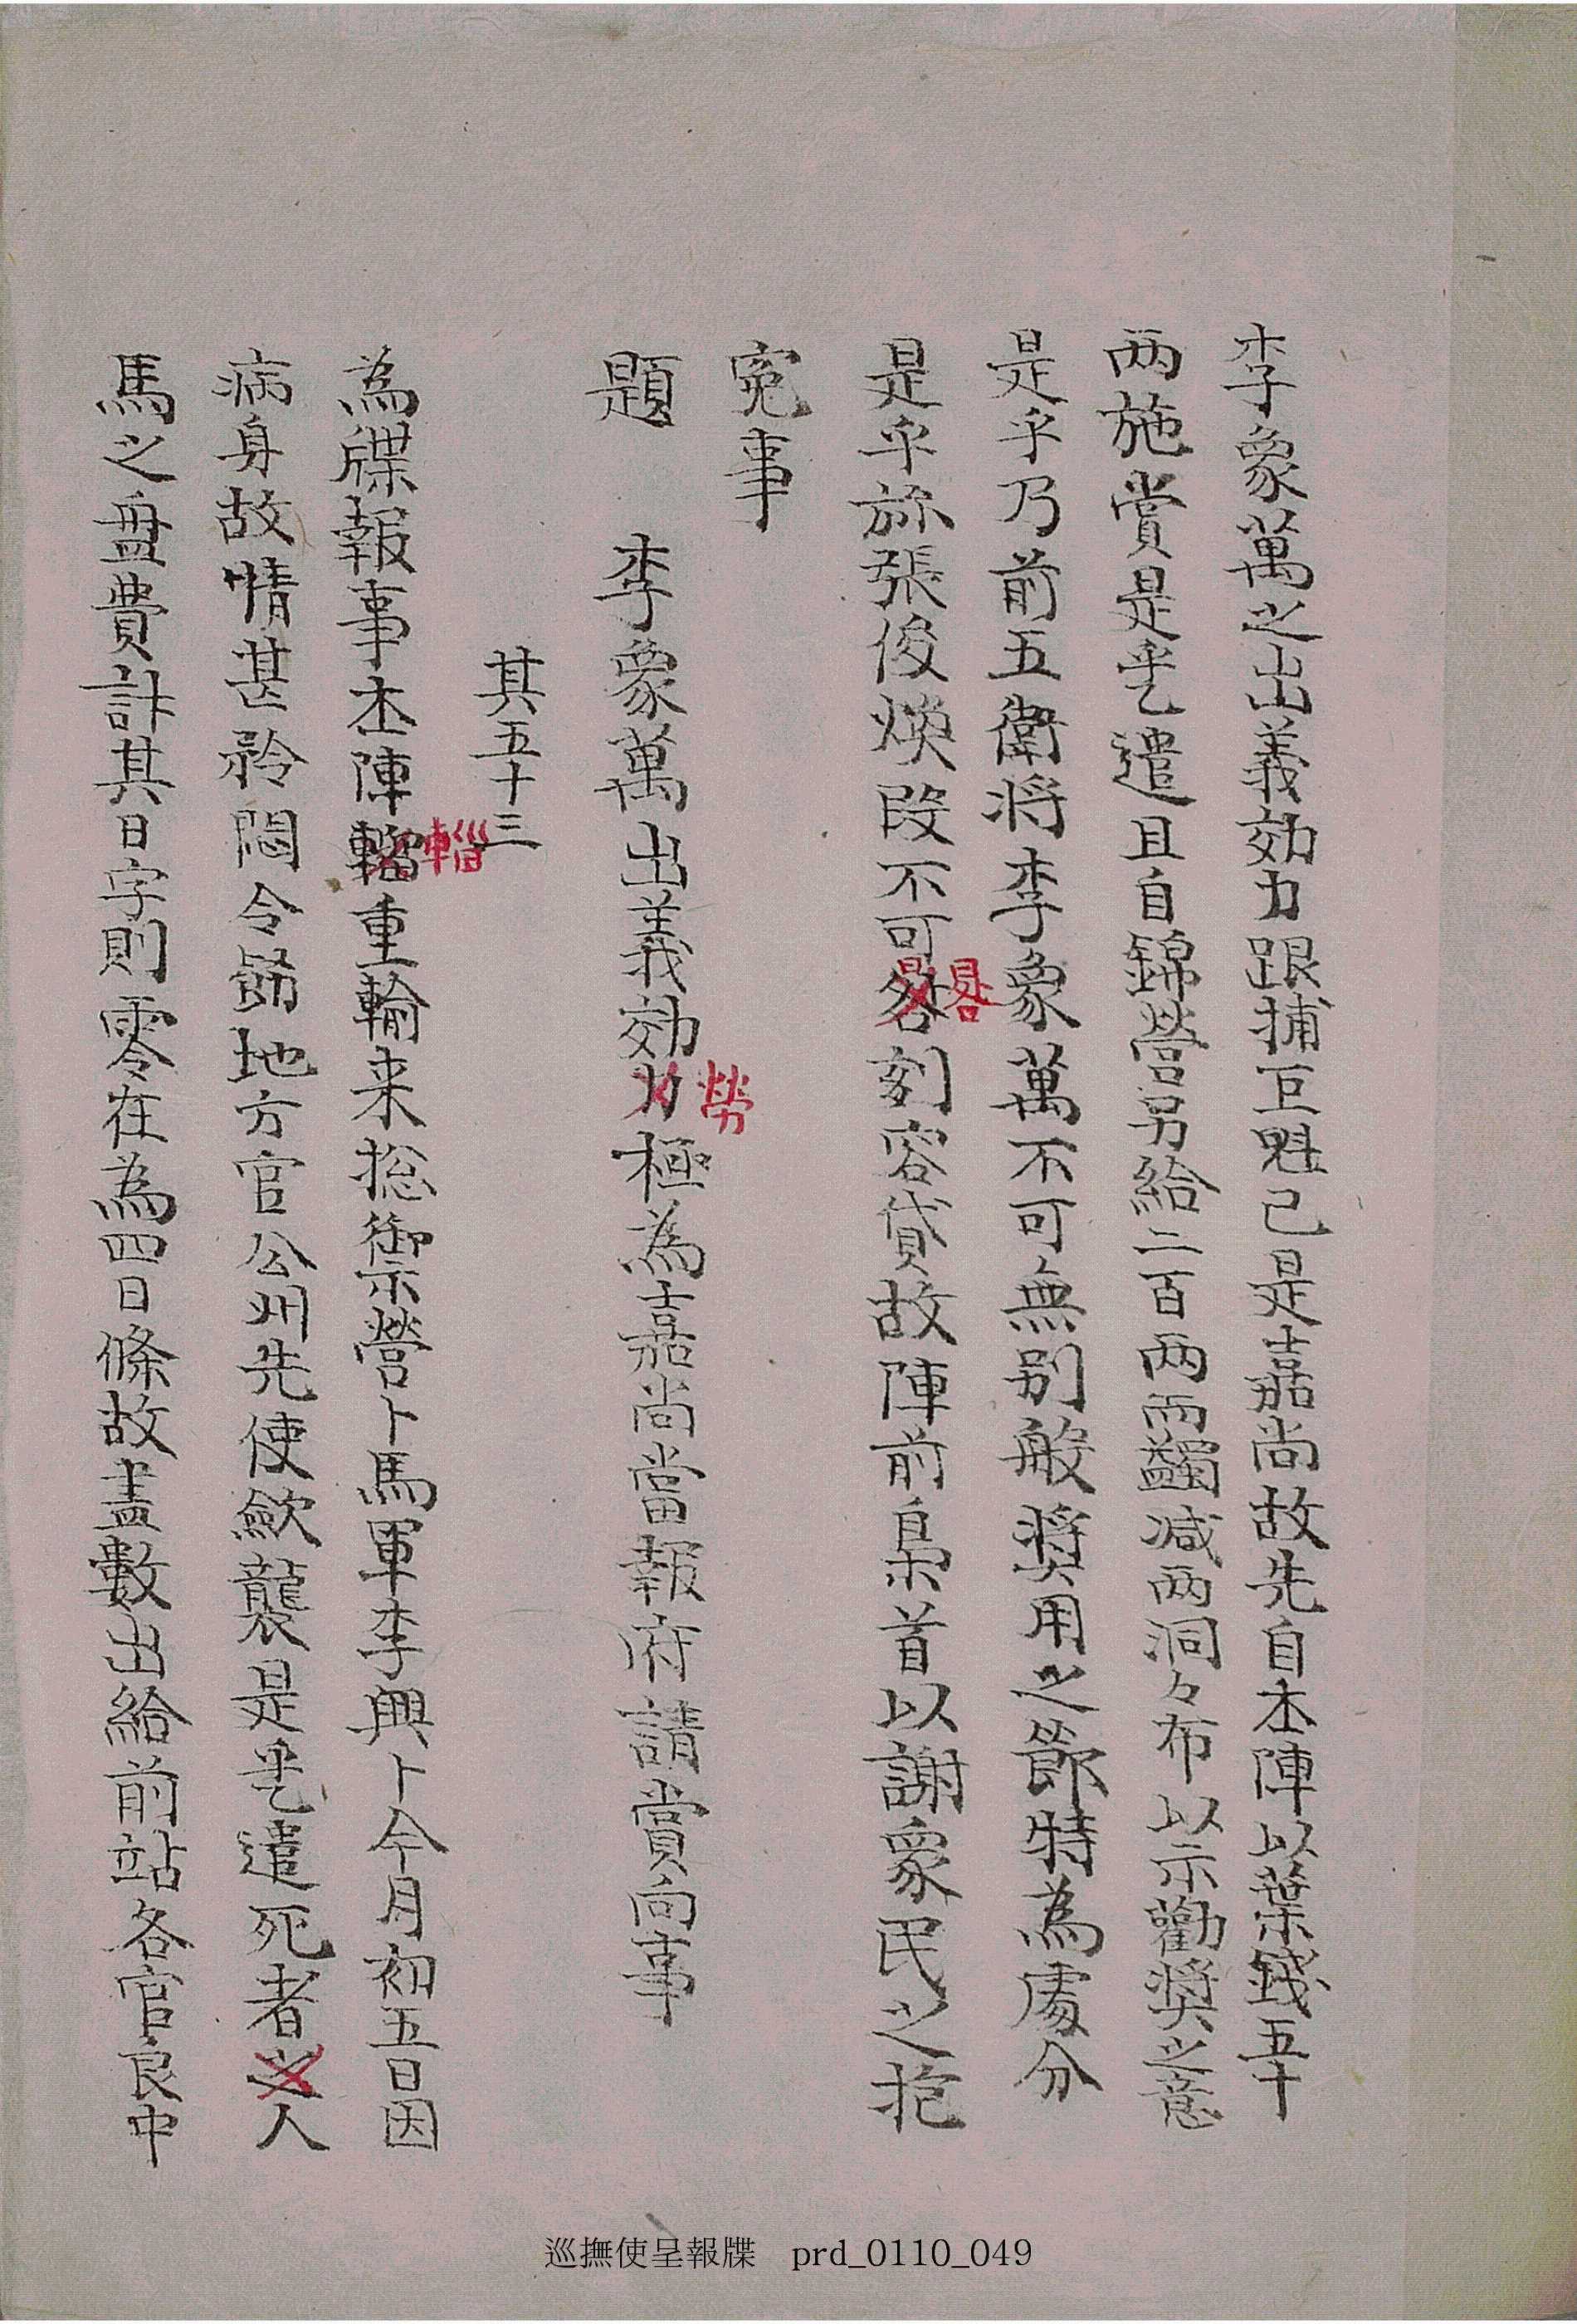 李象萬之出義効力跟捕巨魁已是嘉尚故先自本陣以葉錢五十
两施賞是乎乙遣且自錦營另給二百两雨蠲减两洞々布以示勸奬之意
是乎乃前五衛將李象萬不可無別般奬用之節特為處分
是乎旀張俊煥段不可晷刻容貸故陣前梟首以謝衆民之抱
寃事
題 李象萬出義効勞極為嘉尚當報府請賞向事
其五十三
為牒報事本陣輜重輸来捴御營卜馬軍李興卜今月初五日因
病身故情甚矜悶令飭地方官公州先使歛襲是乎乙遣死者人
馬之盤費計其日字則零在為四日條故盡數出給前站各官良中
巡撫使呈報牒 prd_0110_049